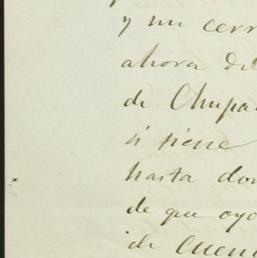 y un cerr
ahora del
de Chupa
si tiene
hasta don
de que oyo
de cuen